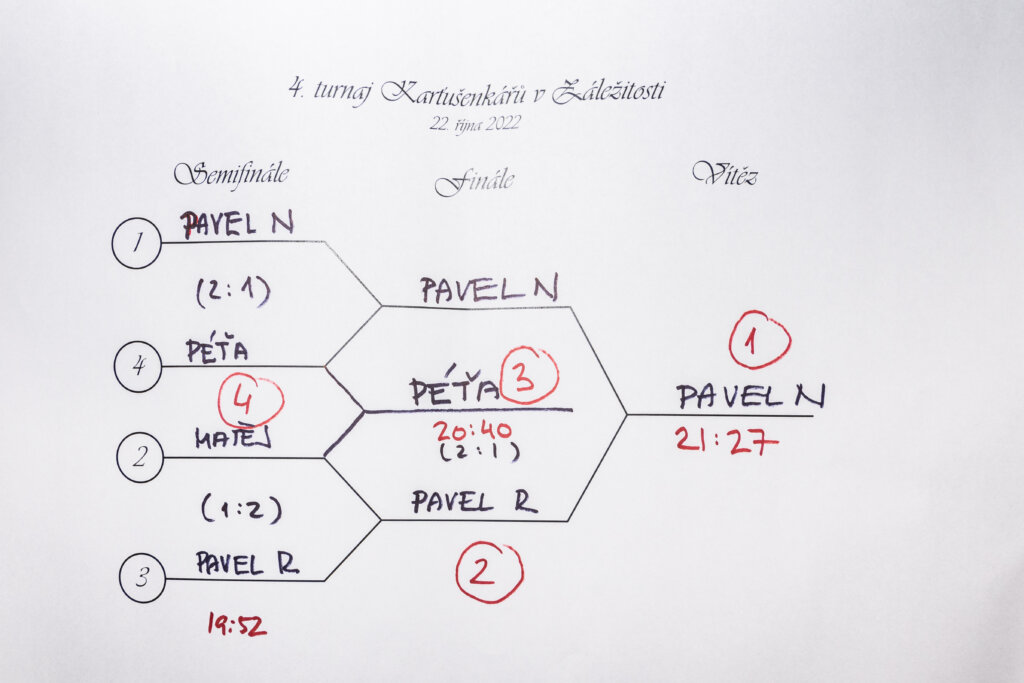 4. turnaj Kartušenkářů v Záležitosti
22. října 2022
Semifinále
Finále
Vítěz
1 PAVEL N
(2:1)
PAVEL N
1
4 PÉŤA
4
PÉŤA 3
PAVEL N
20:40
21:27
2 MATĚJ
(2:1)
(1:2)
PAVEL R
3 PAVEL R
2
19:52